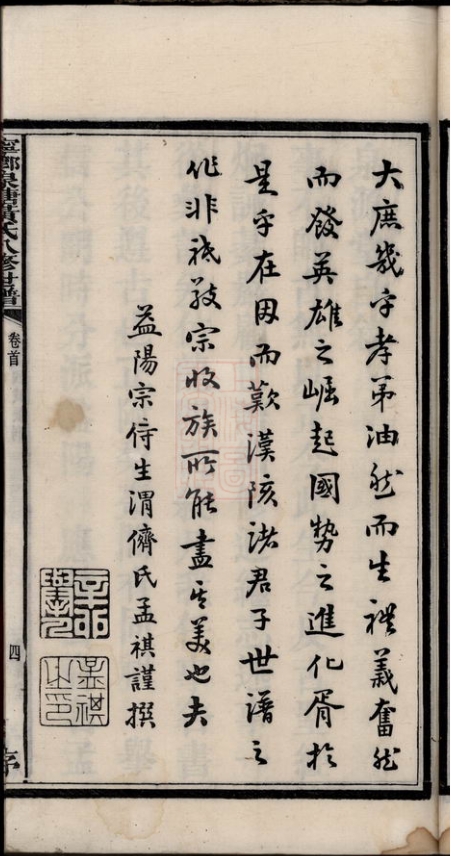 大庶幾孝弟油然而生禮義奮然
而發英雄之崛起國勢之進化胥於
是乎在因而歎漢陔諸君子世譜之
作非祇敬宗收族所能盡其美也夫
益陽宗侍生渭儕氏孟祺謹撰
孟祺
之印
寧鄉泉塘黃氏八修世譜
卷首
四
序